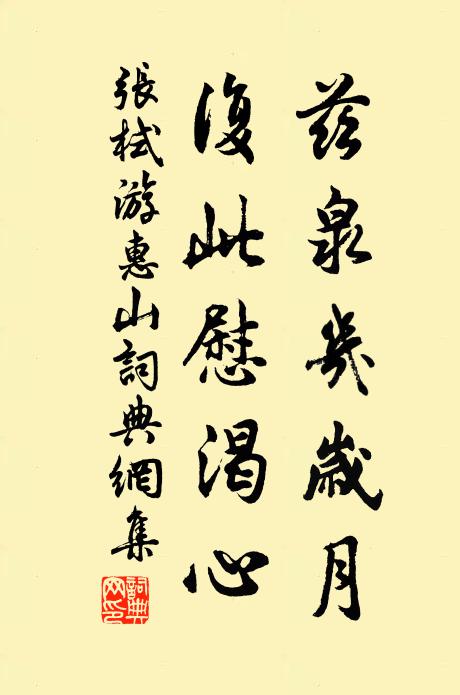 茲泉幾歲月
復此慰渴心
張栻游惠山詞典網集
詞典网印